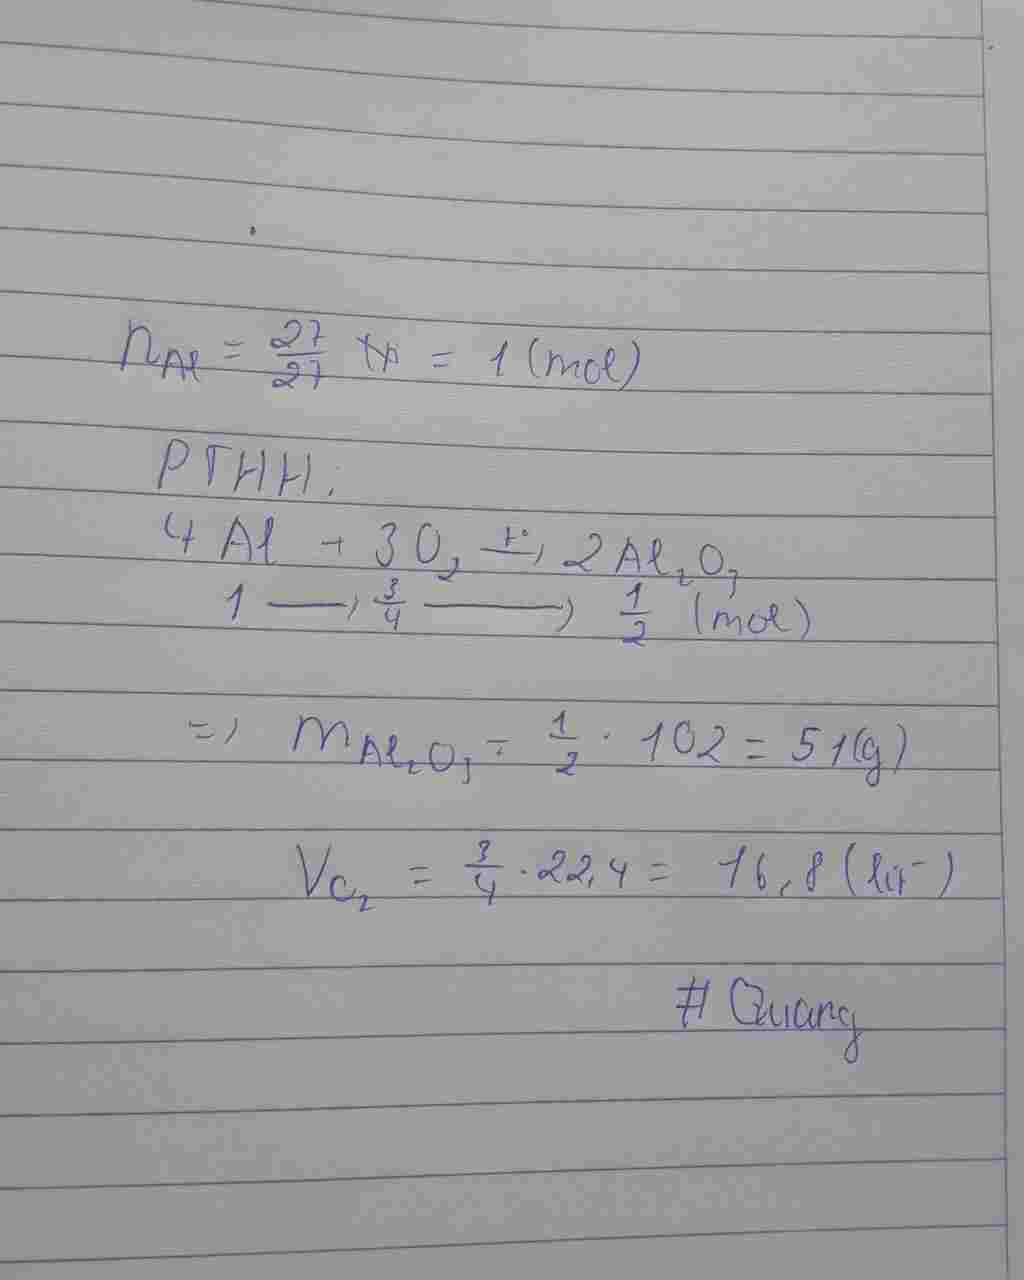 nAl = 27/27 = 1 (mol)
PTHH:
4Al + 3O₂ →(t°) 2Al₂O₃
1 → 3/4 → 1/2 (mol)
=> mAl₂O₃ = 1/2 . 102 = 51(g)
VO₂ = 3/4 . 22,4 = 16,8 (lít)
# Quang